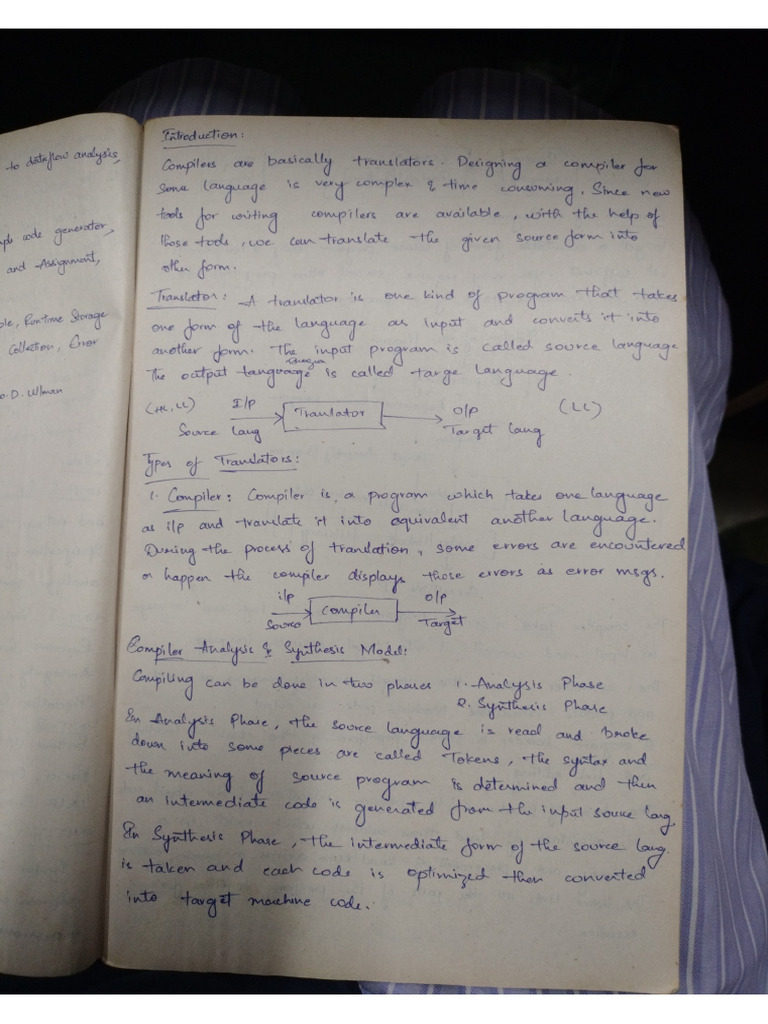 to dataflow analysis,
code generator,
and Assignment,
Runtime Storage
Collection, Error
D. Ullman
Introduction:
Compilers are basically translators. Designing a compiler for
some language is very complex & time consuming. Since new
tools for writing compilers are available, with the help of
those tools, we can translate the given source form into
other form.
Translator: A translator is one kind of program that takes
one form of the language as input and converts it into
another form. The input program is called source language
The output language is called targe language.
(HL, LL) I/P Translator O/P (LL)
Source Lang Target lang
Types of Translators:
1. Compiler: Compiler is a program which takes one language
as i/p and translate it into equivalent another language.
During the process of translation, some errors are encountered
or happen the compiler displays those errors as error msgs.
i/p Compiler O/P
Source Target
Compiler Analysis & Synthesis Model:
Compiling can be done in two phases 1. Analysis Phase
2. Synthesis Phase
In Analysis Phase, the source language is read and broke
down into some pieces are called Tokens, the syntax and
the meaning of source program is determined and then
an intermediate code is generated from the input source lang.
In Synthesis Phase, the intermediate form of the source lang.
is taken and each code is optimized then converted
into target machine code.